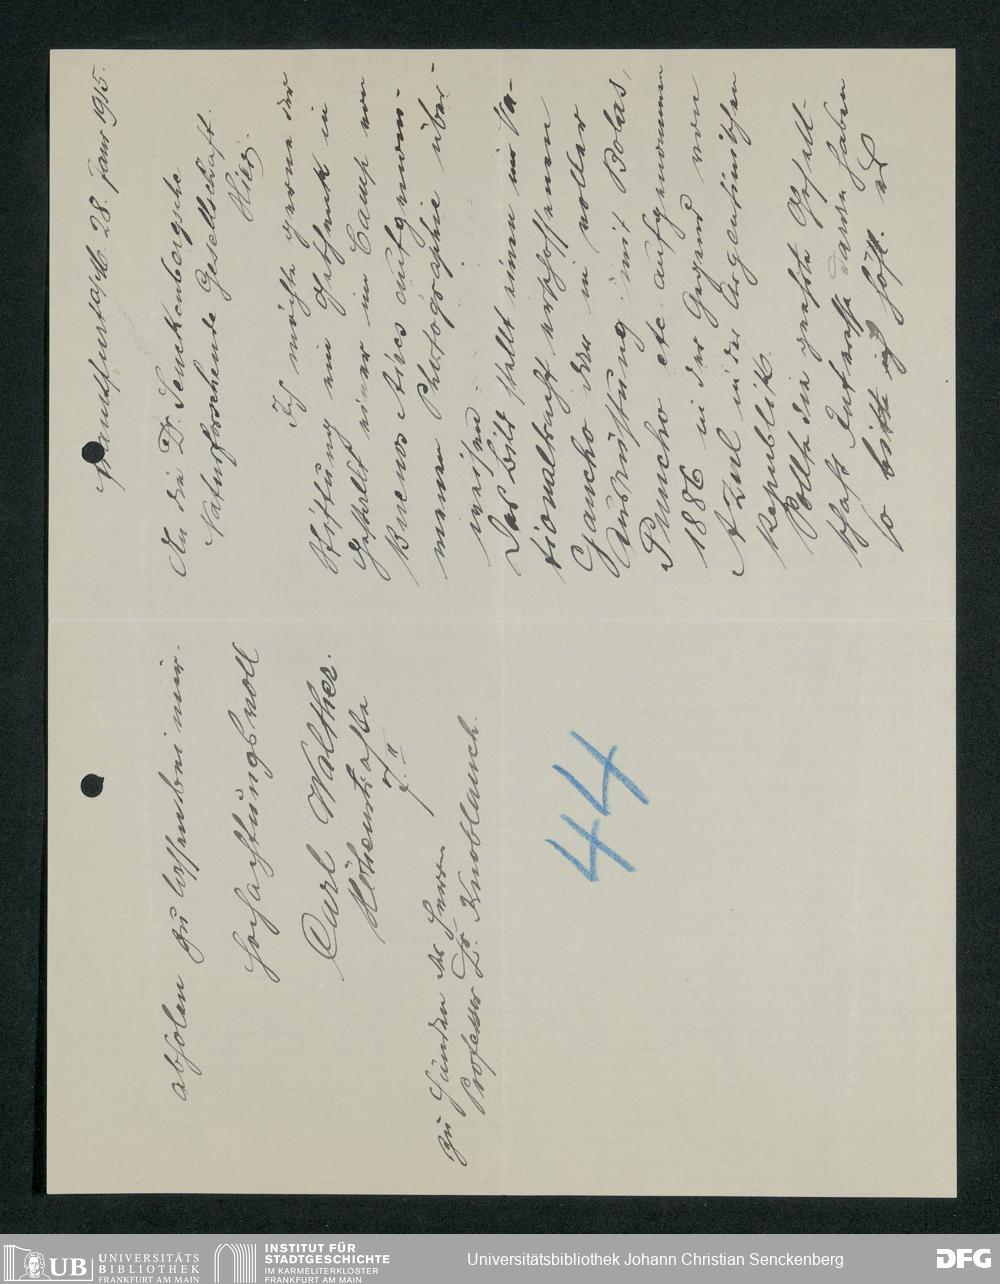 Frankfurt a/M. 28. Januar 1915.
An die Dr. Senckenbergsche
Naturforschende Gesellschaft.
Hier.
Ich möchte gerne der
Stiftung ein Geschenk in
Gestalt einer im Camp von
Buenos Aires aufgenom-
menen Photographie über-
weisen
Das Bild stellt einen im Na-
tionaltracht erschossenen
Gaucho dar in voller
Ausrüstung mit Bolas,
Puncho etc aufgenommen
1886 in der Gegend von
Azul in der Argentinischen
Republik.
Sollte die geehrte Gesell-
schaft Interesse daran haben
so bitte ich höfl. es
abholen zu lassen bei mir.
Hochachtungsvoll
Carl Walther.
Höhenstrasse
7 II
Zu Händen des Herrn
Professor Dr. Knoblauch.
44
UB UNIVERSITÄTS
BIBLIOTHEK
FRANKFURT AM MAIN
INSTITUT FÜR
STADTGESCHICHTE
IM KARMELITERKLOSTER
FRANKFURT AM MAIN
Universitätsbibliothek Johann Christian Senckenberg
DFG